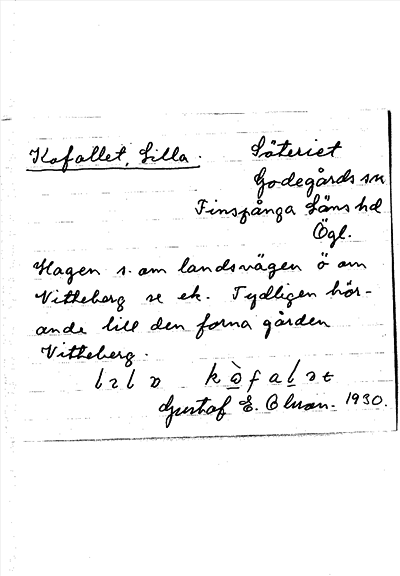 Kofallet, Lilla. Säteriet
Godegårds sn
Finspånga Läns hd
Ögl.
Hagen s. om landsvägen ö om
Vitteberg se ek. Tydligen hör-
ande till den forna gården
Vitteberg.
Gustaf E. 1930.